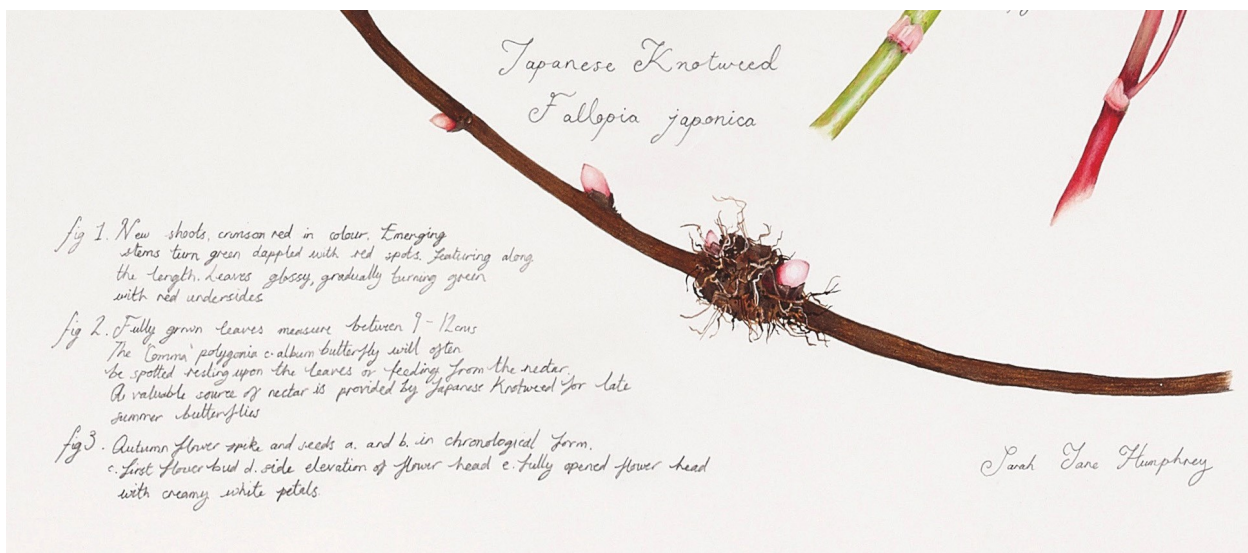 Japanese Knotweed
Fallopia japonica
fig 1. New shoots, crimson red in colour. Emerging
stems turn green dappled with red spots. featuring along
the length. Leaves glossy, gradually turning green
with red undersides
fig 2. Fully grown leaves measure between 9-12cms
The 'Comma' polygonia c-album butterfly will often
be spotted resting upon the leaves or feeding from the nectar.
A valuable source of nectar is provided by Japanese Knotweed for late
summer butterflies
fig 3. Autumn flower spike and seeds a. and b. in chronological form.
c. first flower bud d. side elevation of flower head e. fully opened flower head
with creamy white petals.
Sarah Jane Humphrey